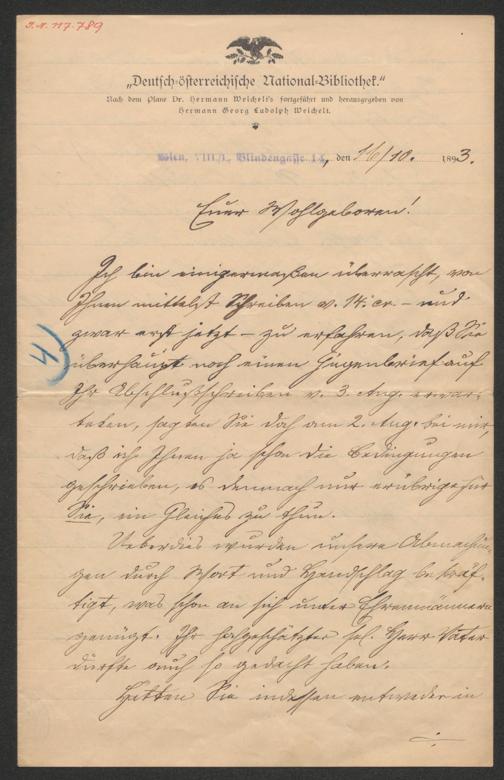 I.N. 117.789
„Deutsch-österreichische National-Bibliothek.“
Nach dem Plane Dr. Hermann Weichelt's fortgeführt und herausgegeben von
Hermann Georg Ludolph Weichelt.
Wien, VIII/1, Blindengasse 14, den 16/10. 1893.
Euer Wohlgeboren!
Ich bin einigermaßen überrascht, von
Ihnen mittelst Schreiben v. 14. cr. – und
zwar erst jetzt – zu erfahren, daß Sie
4
überhaupt noch einen Gegenbrief auf
Ihr Abschlußschreiben v. 3. Aug. erwar-
teten, sagten Sie doch am 2. Aug. bei mir,
daß ich Ihnen ja schon die Bedingungen
geschrieben, es demnach nur erübrige für
Sie, ein Gleiches zu thun.
Ueberdies wurden unsere Abmachun-
gen durch Wort und Handschlag bekräf-
tigt, was schon an sich unter Ehrenmännern
genügt. Ihr hochgeschätzter sel. Herr Vater
dürfte auch so gedacht haben.
Hätten Sie indessen entweder in